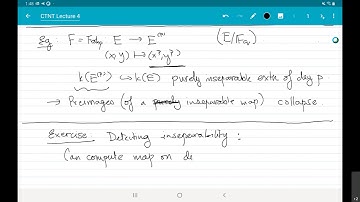 1:48
CTNT Lecture 4
Eg: F = Frob_p E → E^(p) (E/F_q)
(x, y) ↦ (x^p, y^p)
k(E^(p)) ↪ k(E) purely inseparable extn of deg p
→ Preimages (of a purely inseparable map) collapse.
Exercise: Detecting inseparability:
Can compute map on de